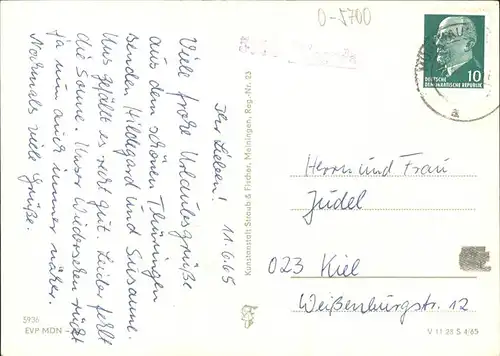 0-5700
Ihr Lieben! 11.6.65
Viele frohe Urlaubsgrüße
aus dem schönen Thüringen
senden Hildegard und Susanne.
Uns gefällt es recht gut. Leider fehlt
die Sonne. Unser Wiedersehen rückt
ja nun auch immer näher.
Nochmals viele Grüße.
5936
EVP MDN
Kunstanstalt Straub & Fischer, Meiningen, Reg.-Nr. 23
DEUTSCHE
DEMOKRATISCHE REPUBLIK
10
a
Herrn und Frau
Judel
023 Kiel
Weißenburgstr. 12
V 11 28 S 4/65